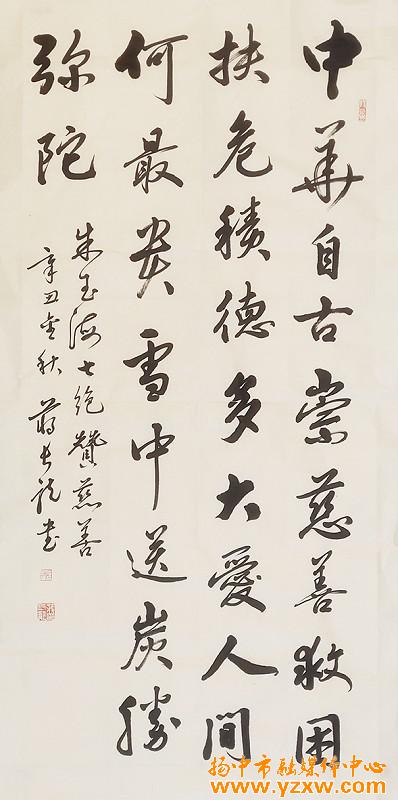 中華自古崇慈善救困
扶危積德多大愛人間
何最贵雪中送炭勝
弥陀
朱玉海七绝贊慈善
辛丑金秋 蒋长龙书
扬中市融媒体中心
www.yzxw.com